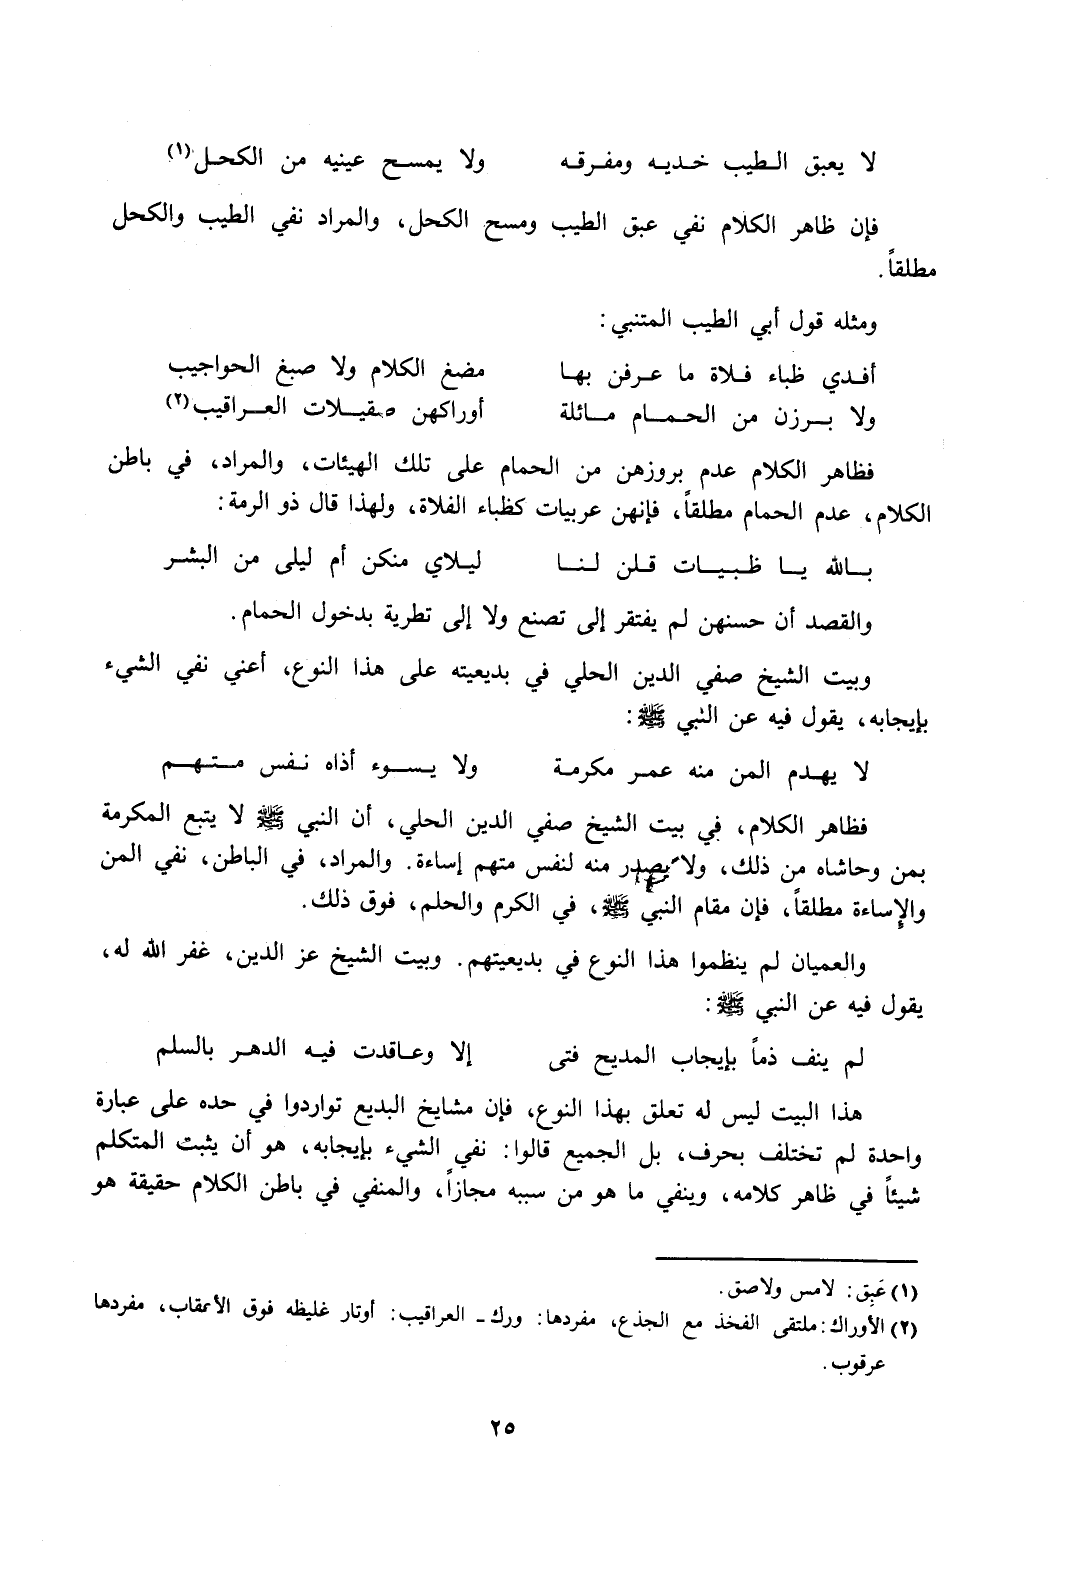 لا يعبق الطيب خديه ومفرقه ولا يمسح عينيه من الكحل(١)
فإن ظاهر الكلام نفي عبق الطيب ومسح الكحل، والمراد نفي الطيب والكحل
مطلقاً.
ومثله قول أبي الطيب المتنبي:
أفدي ظباء فلاة ما عرفن بها مضغ الكلام ولا صبغ الحواجيب
ولا برزن من الحمام مائلة أوراكهن صقيلات العراقيب(٢)
فظاهر الكلام عدم بروزهن من الحمام على تلك الهيئات، والمراد، في باطن
الكلام، عدم الحمام مطلقاً، فإنهن عربيات كظباء الفلاة، ولهذا قال ذو الرمة:
بالله يا ظبيات قلن لنا ليلاي منكن أم ليلى من البشر
والقصد أن حسنهن لم يفتقر إلى تصنع ولا إلى تطرية بدخول الحمام.
وبيت الشيخ صفي الدين الحلي في بديعيته على هذا النوع، أعني نفي الشيء
بإيجابه، يقول فيه عن النبي ﷺ:
لا يهدم المن منه عمر مكرمة ولا يسوء أذاه نفس متهم
فظاهر الكلام، في بيت الشيخ صفي الدين الحلي، أن النبي ﷺ لا يتبع المكرمة
بمن وحاشاه من ذلك، ولا يصدر منه لنفس متهم إساءة. والمراد، في الباطن، نفي المن
والإساءة مطلقاً، فإن مقام النبي ﷺ، في الكرم والحلم، فوق ذلك.
والعميان لم ينظموا هذا النوع في بديعيتهم. وبيت الشيخ عز الدين، غفر الله له،
يقول فيه عن النبي ﷺ:
لم ينف ذماً بإيجاب المديح فتى إلا وعاقدت فيه الدهر بالسلم
هذا البيت ليس له تعلق بهذا النوع، فإن مشايخ البديع تواردوا في حده على عبارة
واحدة لم تختلف بحرف، بل الجميع قالوا: نفي الشيء بإيجابه، هو أن يثبت المتكلم
شيئاً في ظاهر كلامه، وينفي ما هو من سببه مجازاً، والمنفي في باطن الكلام حقيقة هو
(١) عَبِق: لامس ولاصق.
(٢) الأوراك: ملتقى الفخذ مع الجذع، مفردها: ورك ـ العراقيب: أوتار غليظه فوق الأعقاب، مفردها
عرقوب.
٢٥